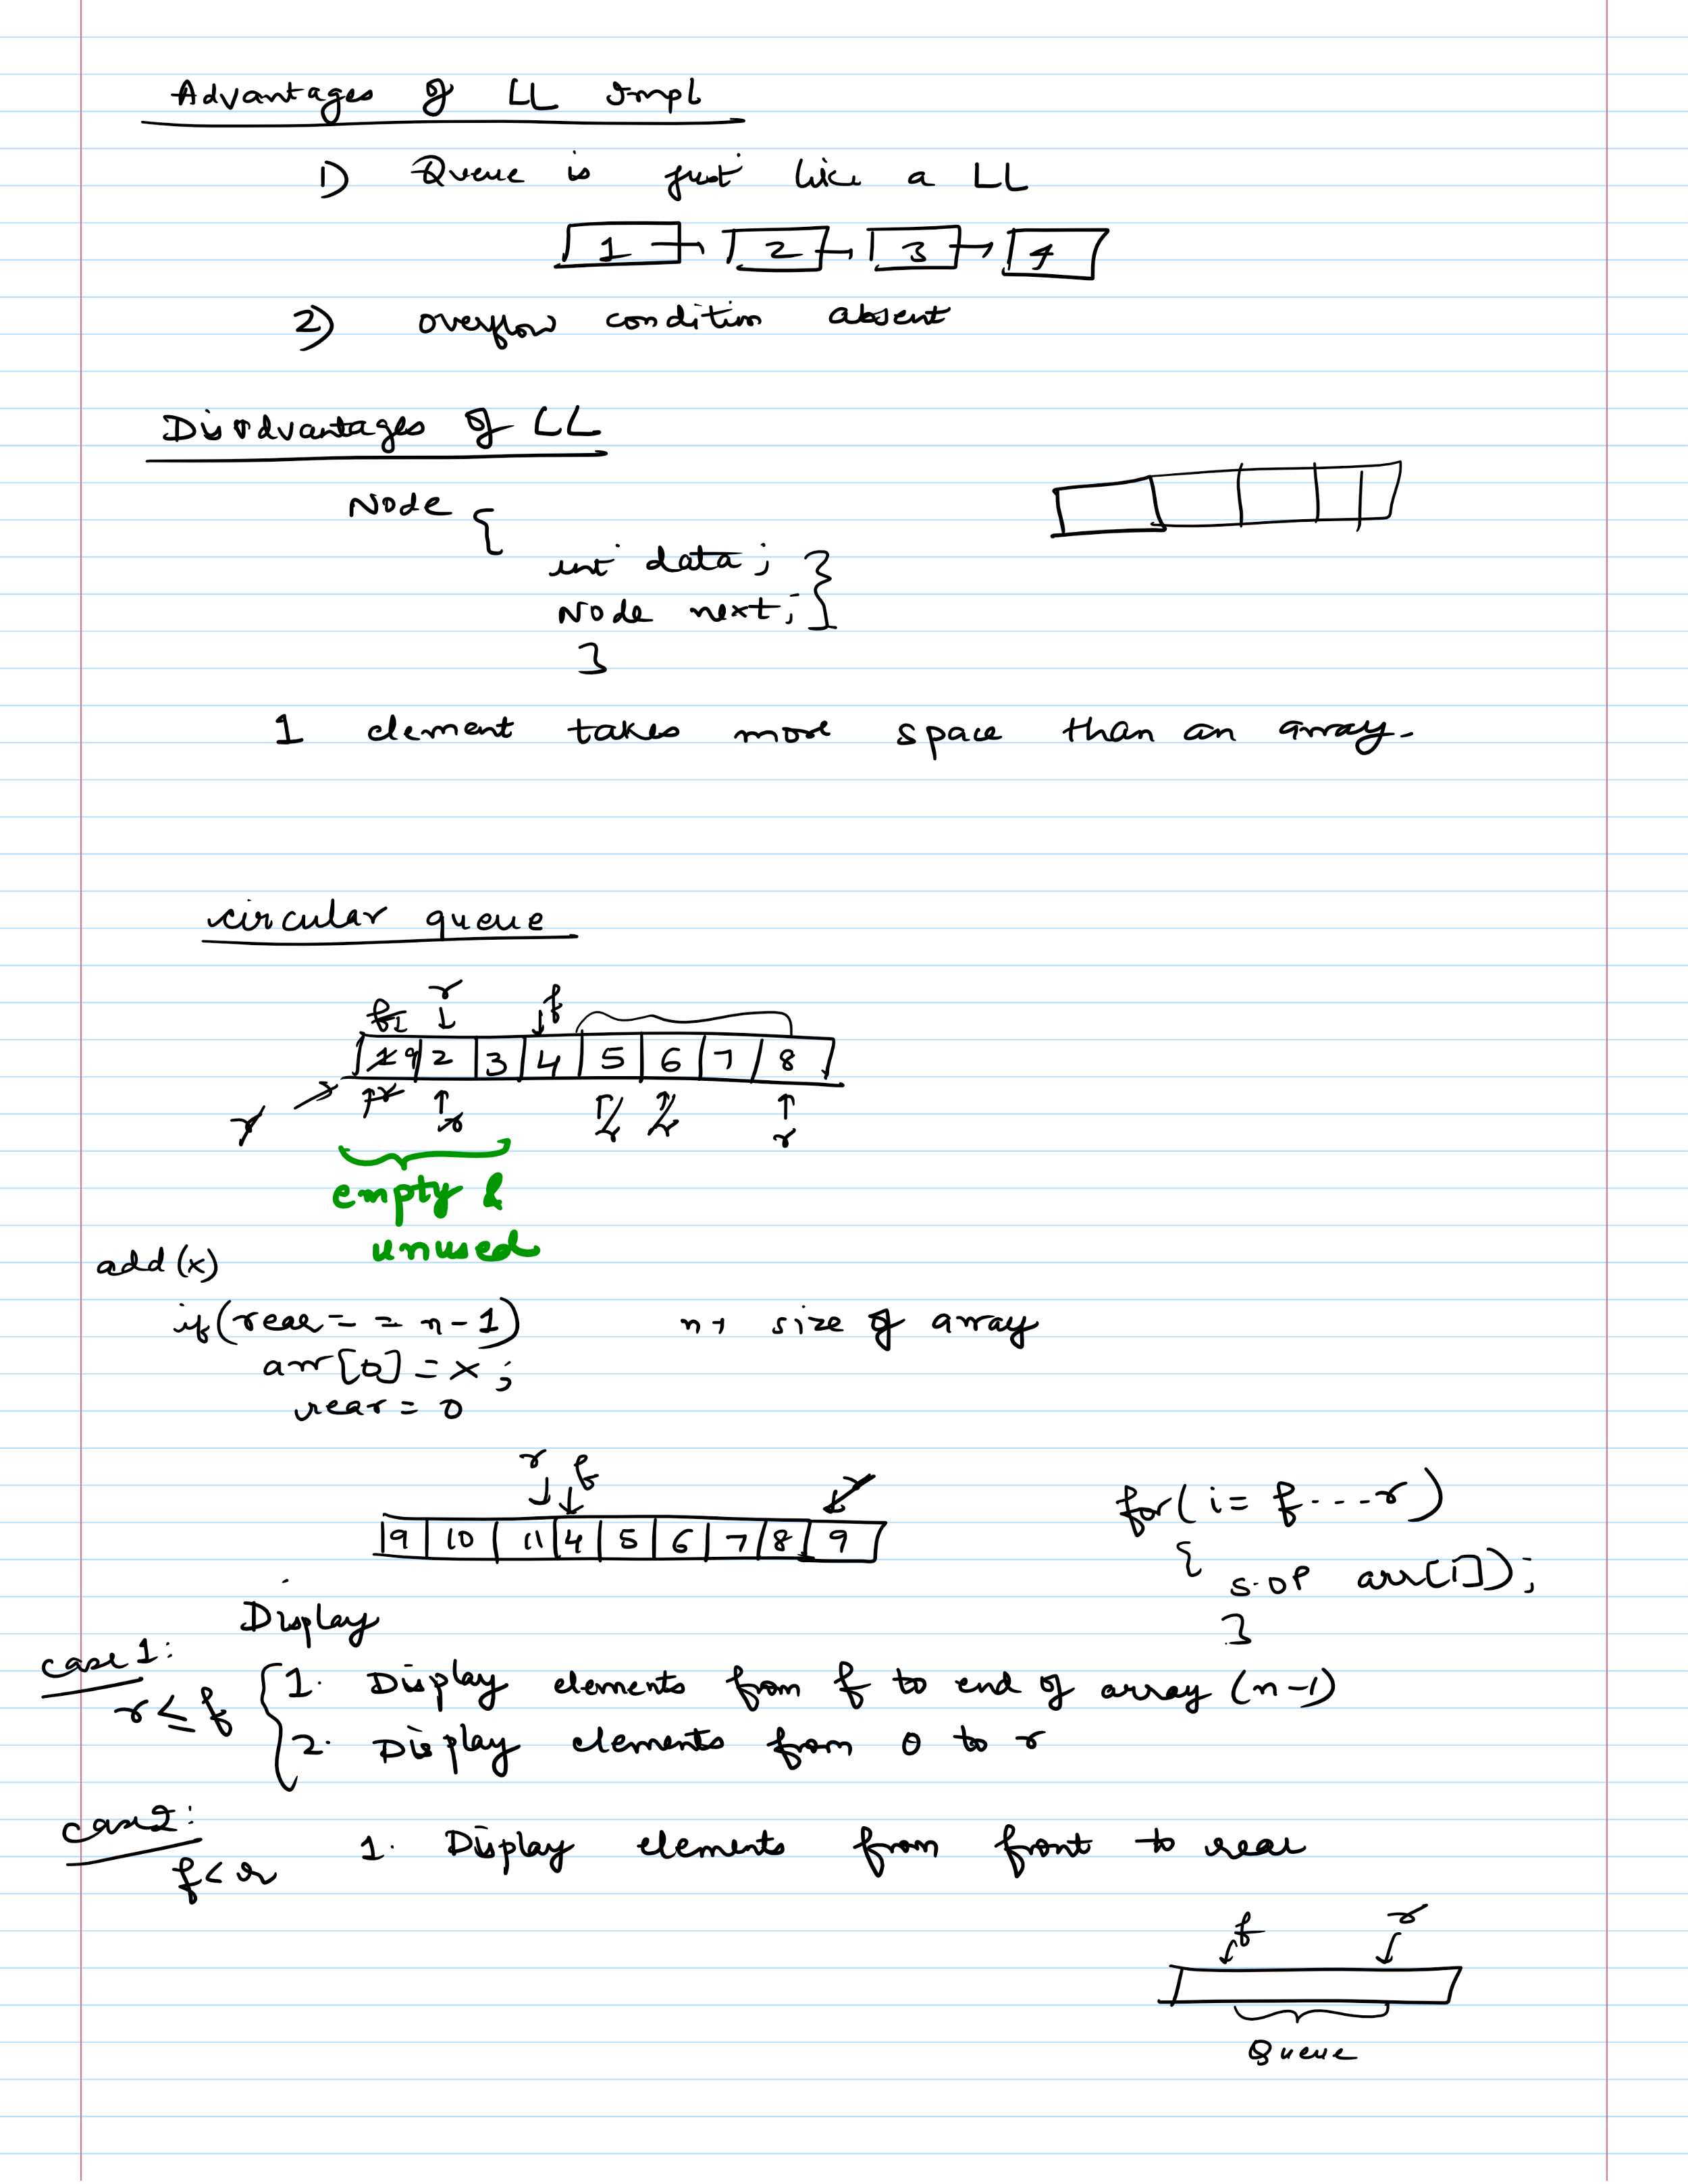 Advantages of LL Impl
1) Queue is just like a LL
1 → 2 → 3 → 4
2) overflow condition absent
Disadvantages of LL
Node {
int data;
Node next; }
}
1 element takes more space than an array.
circular queue
f r f
1 9 2 3 4 5 6 7 8
r r r r
empty &
unused
add(x)
if(rear == n-1) n → size of array
arr[0] = x;
rear = 0
r f r
9 10 11 4 5 6 7 8 9
for(i = f....r)
{
S.OP arr[i]);
}
Display
case 1:
r ≤ f
1. Display elements from f to end of array (n-1)
2. Display elements from 0 to r
case 2:
f < r 1. Display elements from front to rear
f r
Queue